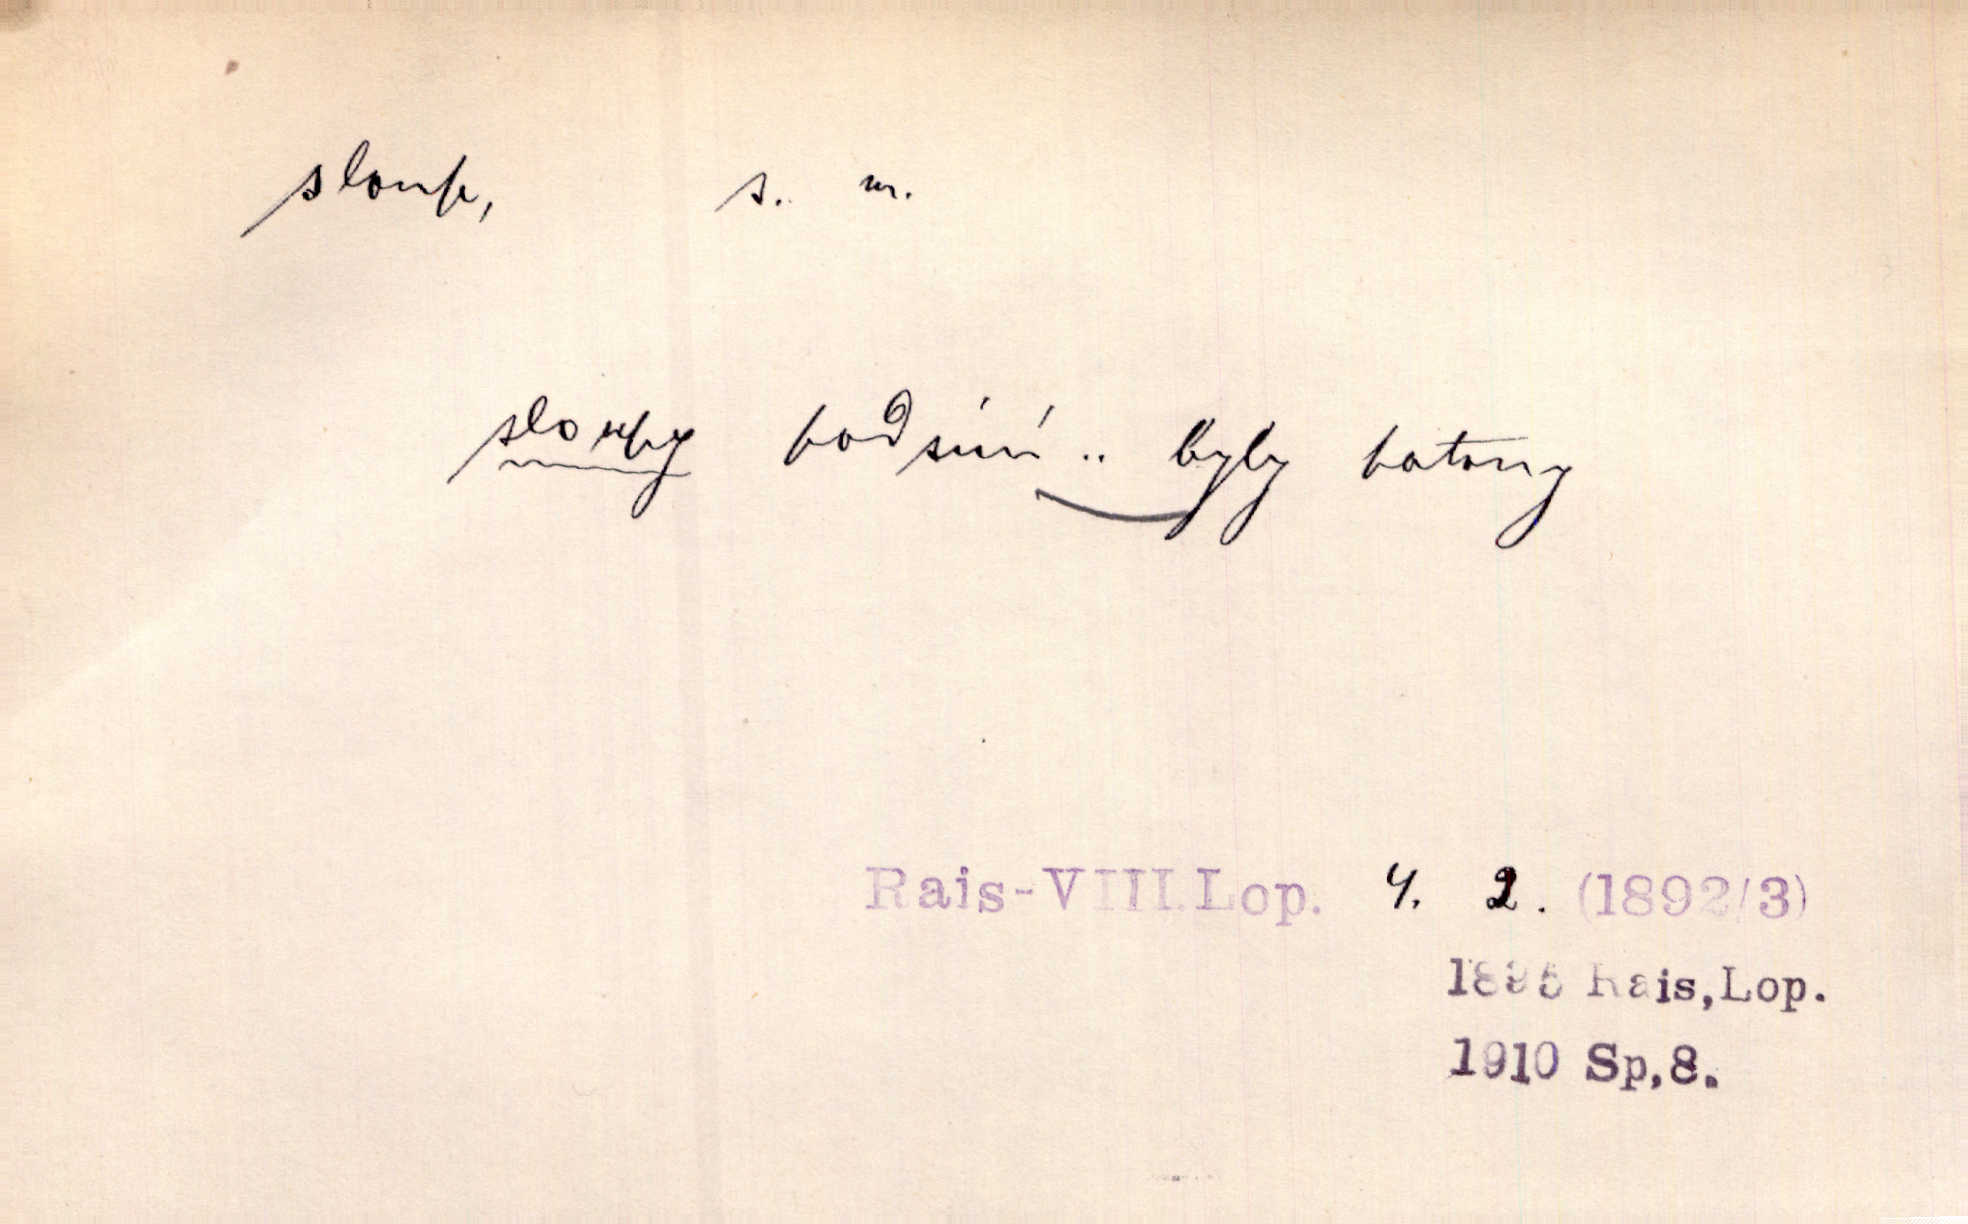 sloup, s. m.
sloupy podsíní .. byly patony
Rais-VIII.Lop. 4. 2. (1892/3)
1895 Rais,Lop.
1910 Sp,8.